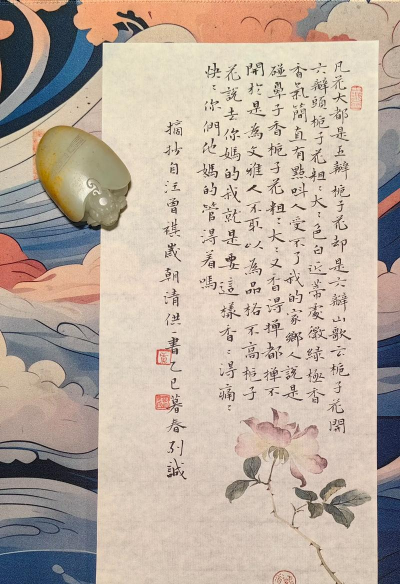 凡花大都是五瓣梔子花却是六瓣山歌云梔子花開
六瓣頭梔子花粗々大々色白近蒂處微綠極香
香氣簡直有點叫人受不了我的家鄉人說是
碰鼻子香梔子花粗々大々又香得撣都撣不
開於是為文雅人不取以為品格不高梔子
花說去你媽的我就是要這樣香々得痛々
快々你們他媽的管得着嗎
摘抄自汪曾祺歲朝清供一書乙巳暮春列誠